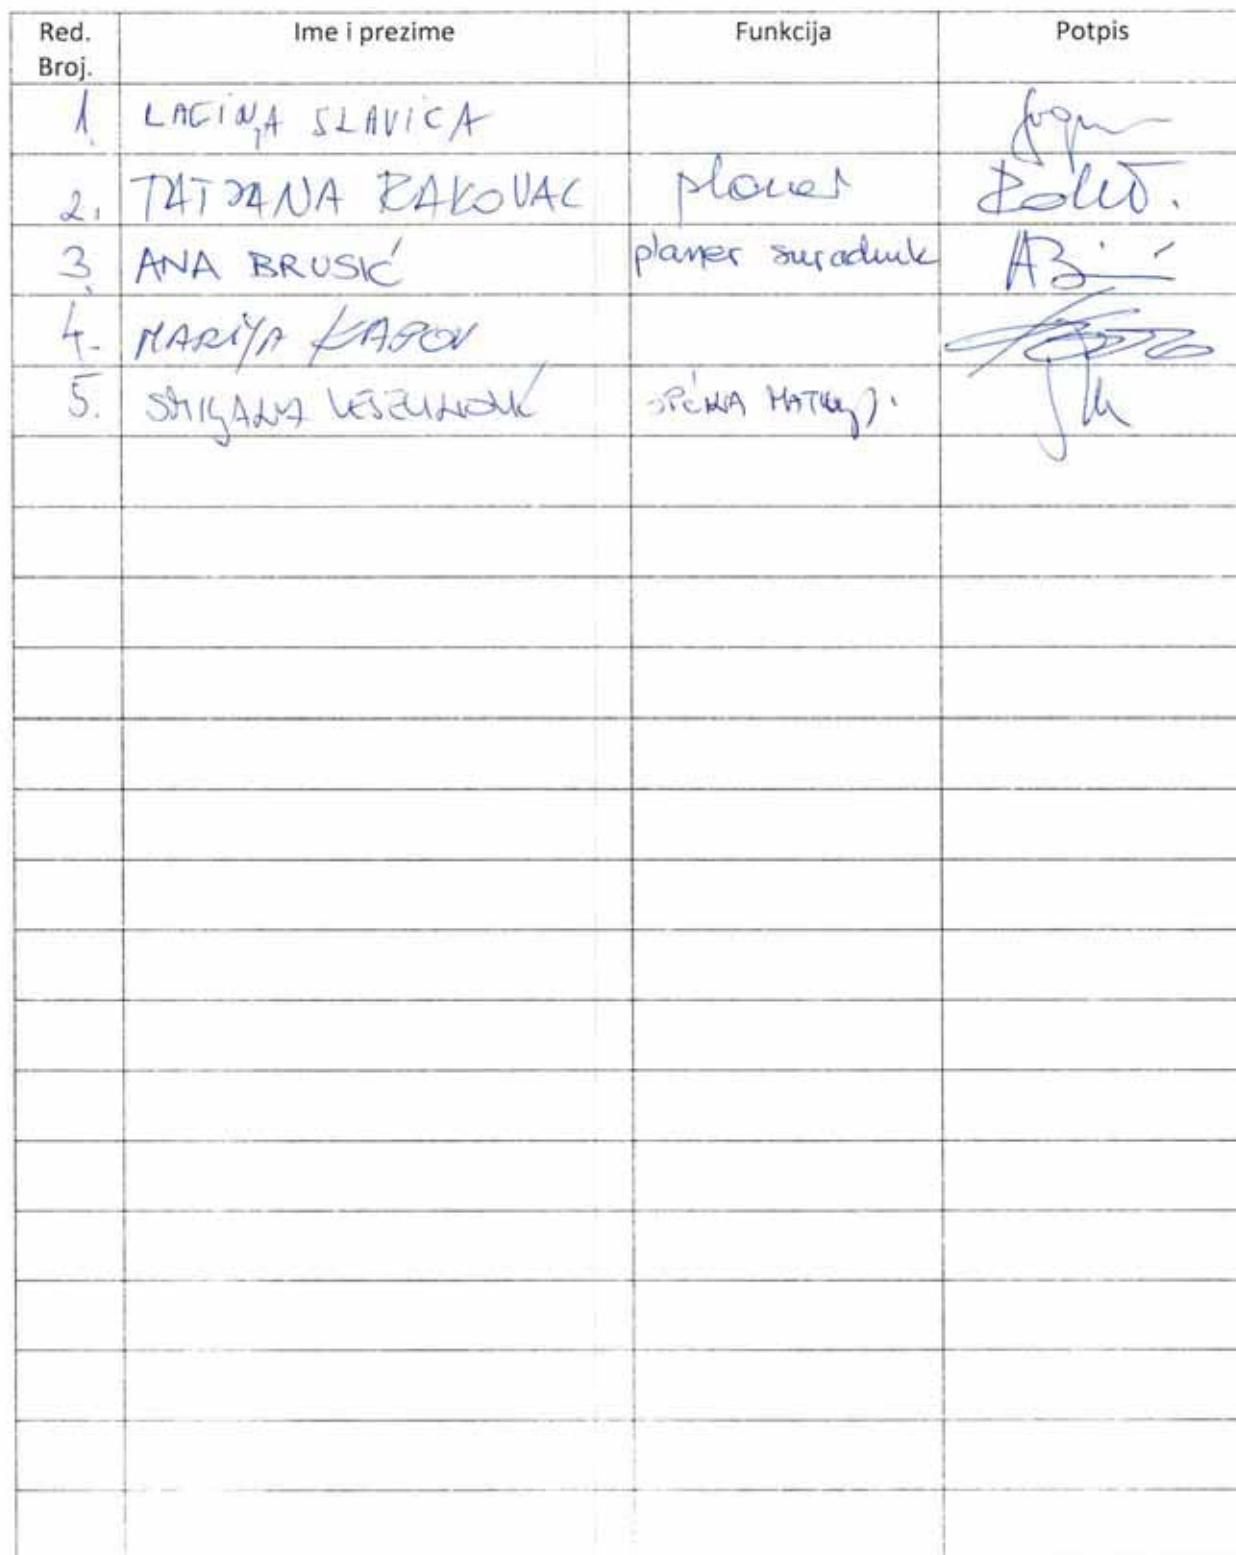 Red. Broj. Ime i prezime Funkcija Potpis
1. LAGINJA SLAVICA
2. TATJANA RAKOVAC planer
3. ANA BRUSIĆ planer suradnik
4. MARIJA KAPOV
5. OPĆINA